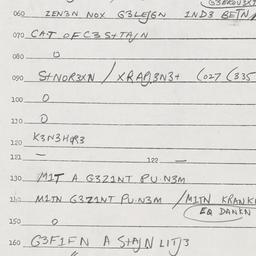 060 ZEN3N NOX G3LEJGN IND3 BETN
070 CAT OF C3 S+TAJN
080 0
090 S+NOR3XN / XRAPJ3N3+ (027 (335
100 0
110 0
120 K3N3H0R3
121 — 122 —
130 MIT A G3Z1NT PU.N3M
140 MITN G3Z1NT PU.N3M / MITN KRANKI
EQ DANKN
150 0
160 G3FIFN A S+AJN LITJ3